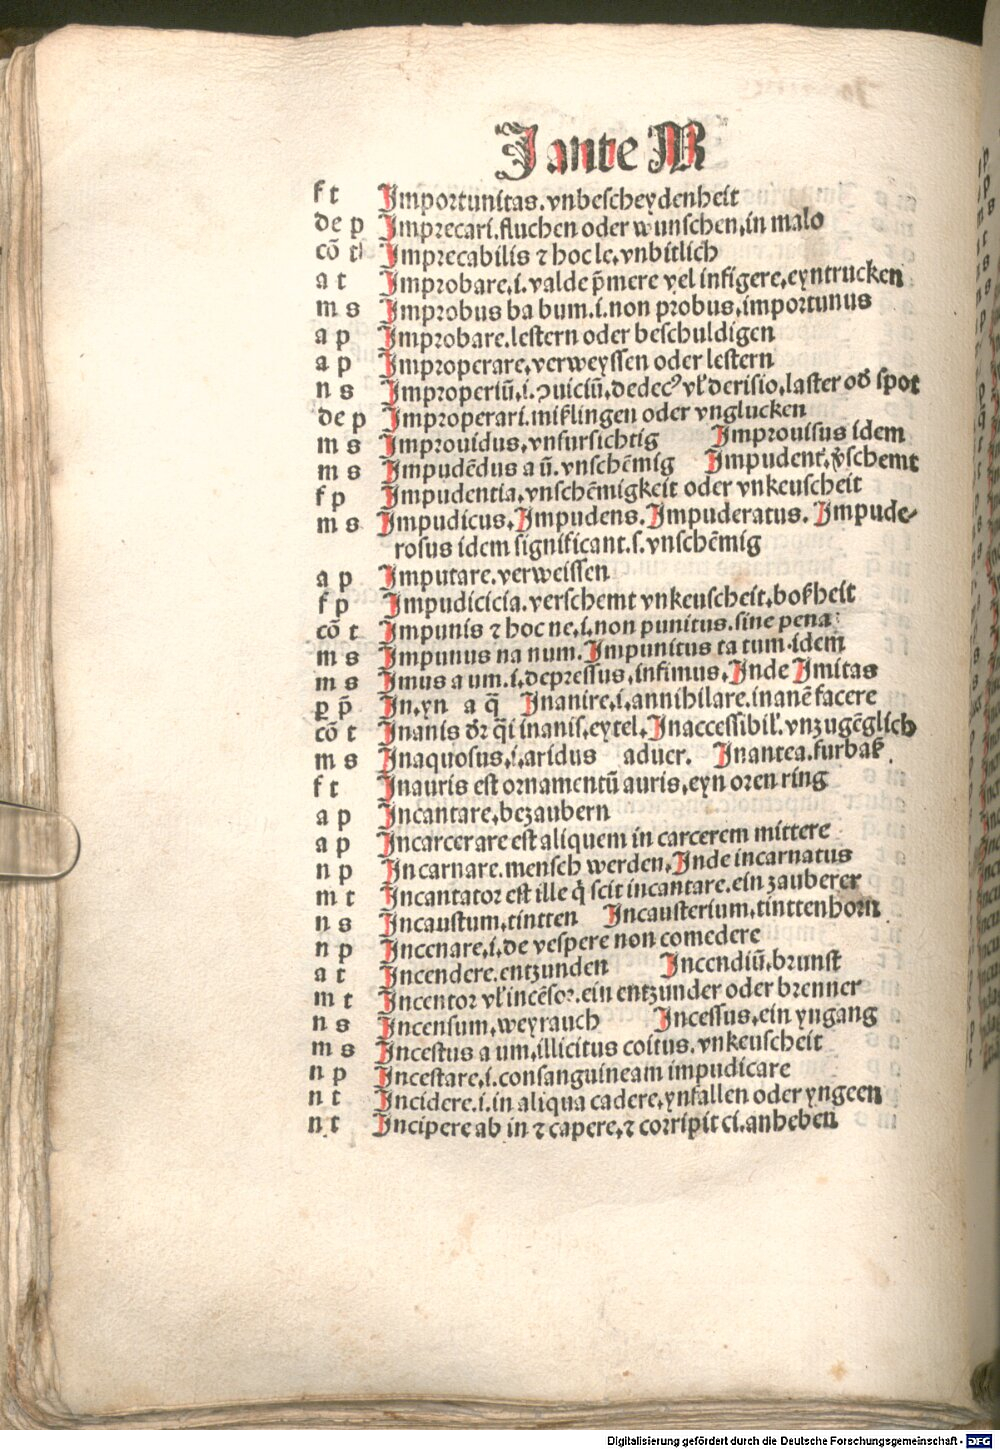 J ante M
f t Jmportunitas.vnbescheydenheit
de p Jmprecari.fluchen oder wunschen,in malo
cō t Jmprecabilis ⁊ hoc le,vnbitlich
a t Jmprobare,i.valde p̄mere vel infigere,eyntrucken
m s Jmprobus ba bum.i.non probus,importunus
a p Jmprobare.lestern oder beschuldigen
a p Jmproperare,verweyssen oder lestern
n s Jmproperiū,i.ↄuiciū.dedecꝰ vł derisio,laster od̛ spot
de p Jmproperari.miſlingen oder vnglucken
m s Jmprouidus,vnfursichtig Jmprouisus idem
m s Jmpudēdus a ū.vnschēmig Jmpudent̛,v̛schemt
f p Jmpudentia,vnschēmigkeit oder vnkeuscheit
m s Jmpudicus,Jmpudens.Jmpuderatus.Jmpude⸗
rosus idem significant.s.vnschēmig
a p Jmputare.verweissen
f p Jmpudicicia.verschemt vnkeuscheit,boſheit
cō t Jmpunis ⁊ hoc ne,i.non punitus.sine pena
m s Jmpunus na num.Jmpunitus ta tum.idem
m s Jmus a um.i.depressus,infimus,Jnde Jmitas
p̱ p̄ Jn,yn a q̄ Jnanire,i.annihilare.inanē facere
cō t Jnanis d̛r q̄i inanis,eytel,Jnaccessibil̛.vnzugēglich
m s Jnaquosus,i.aridus aduer. Jnantea.furbaß
f t Jnauris est ornamentū auris,eyn oren ring
a p Jncantare,bezaubern
a p Jncarcerare est aliquem in carcerem mittere
n p Jncarnare.mensch werden,Jnde incarnatus
m t Jncantator est ille q̇ scit incantare.ein zauberer
n s Jncaustum,tintten Jncausterium,tinttenhorn
n p Jncenare,i.de vespere non comedere
a t Jncendere.entzunden Jncendiū,brunst
m t Jncentor vł incēsor.ein entzunder oder brenner
n s Jncensum,weyrauch Jncessus,ein yngang
m s Jncestus a um,illicitus coitus.vnkeuscheit
n p Jncestare,i.consanguineam impudicare
n t Jncidere.i.in aliqua cadere,ynfallen oder yngeen
n t Jncipere ab in ⁊ capere,⁊ corripit ci.anheben
Digitalisierung gefördert durch die Deutsche Forschungsgemeinschaft - DFG